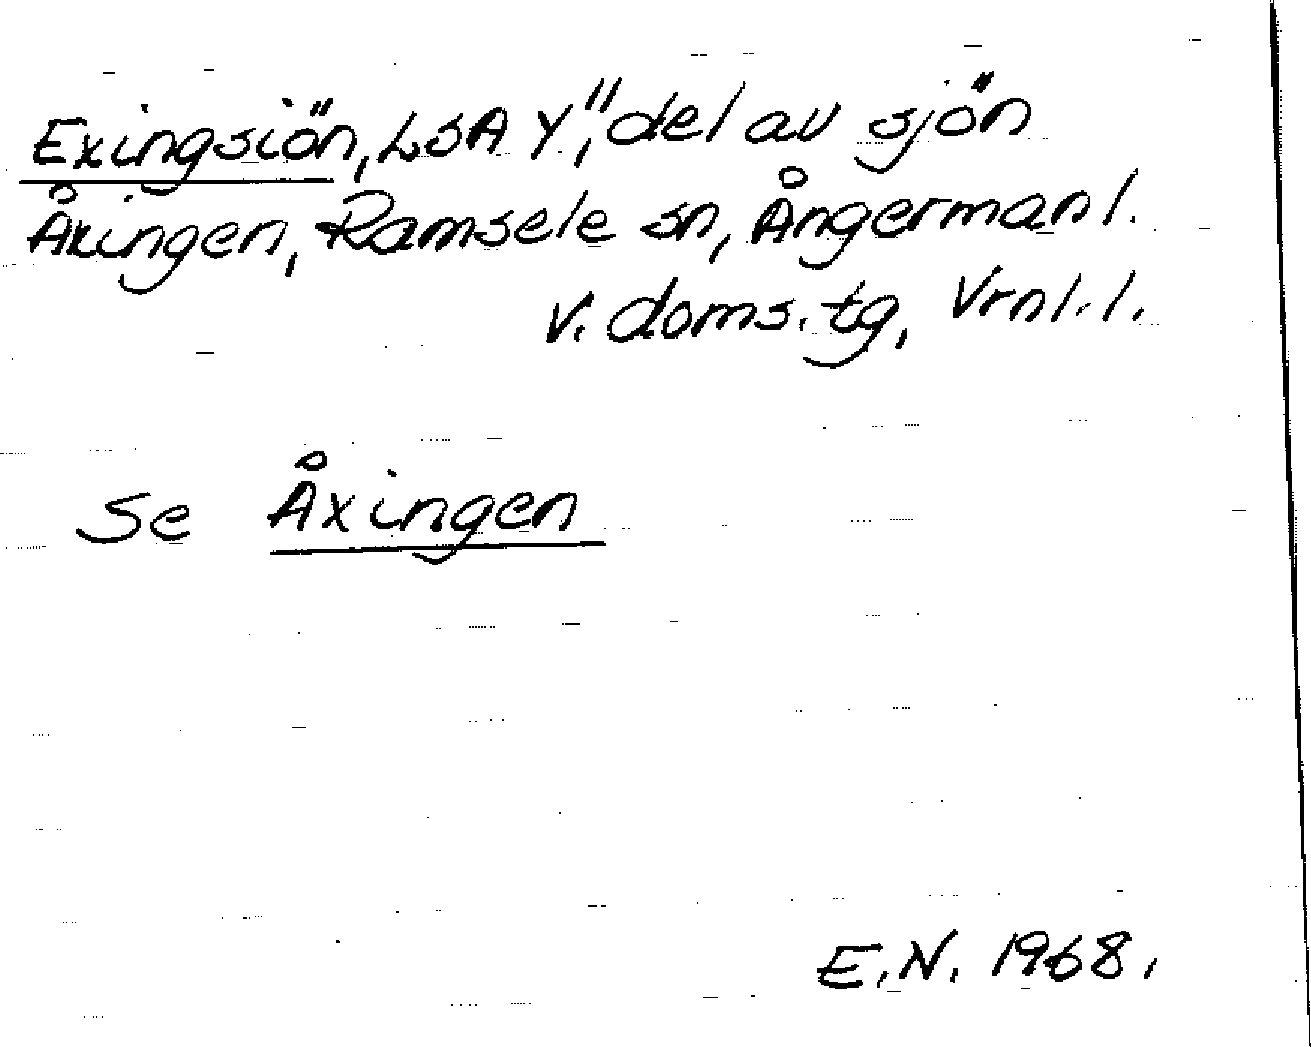 Exingsiön, LSA Y", del av sjön
Åxingen, Ramsele sn, Ångermanl.
V. doms. tg, Vrnl. l.
Se Åxingen
E.N. 1968.